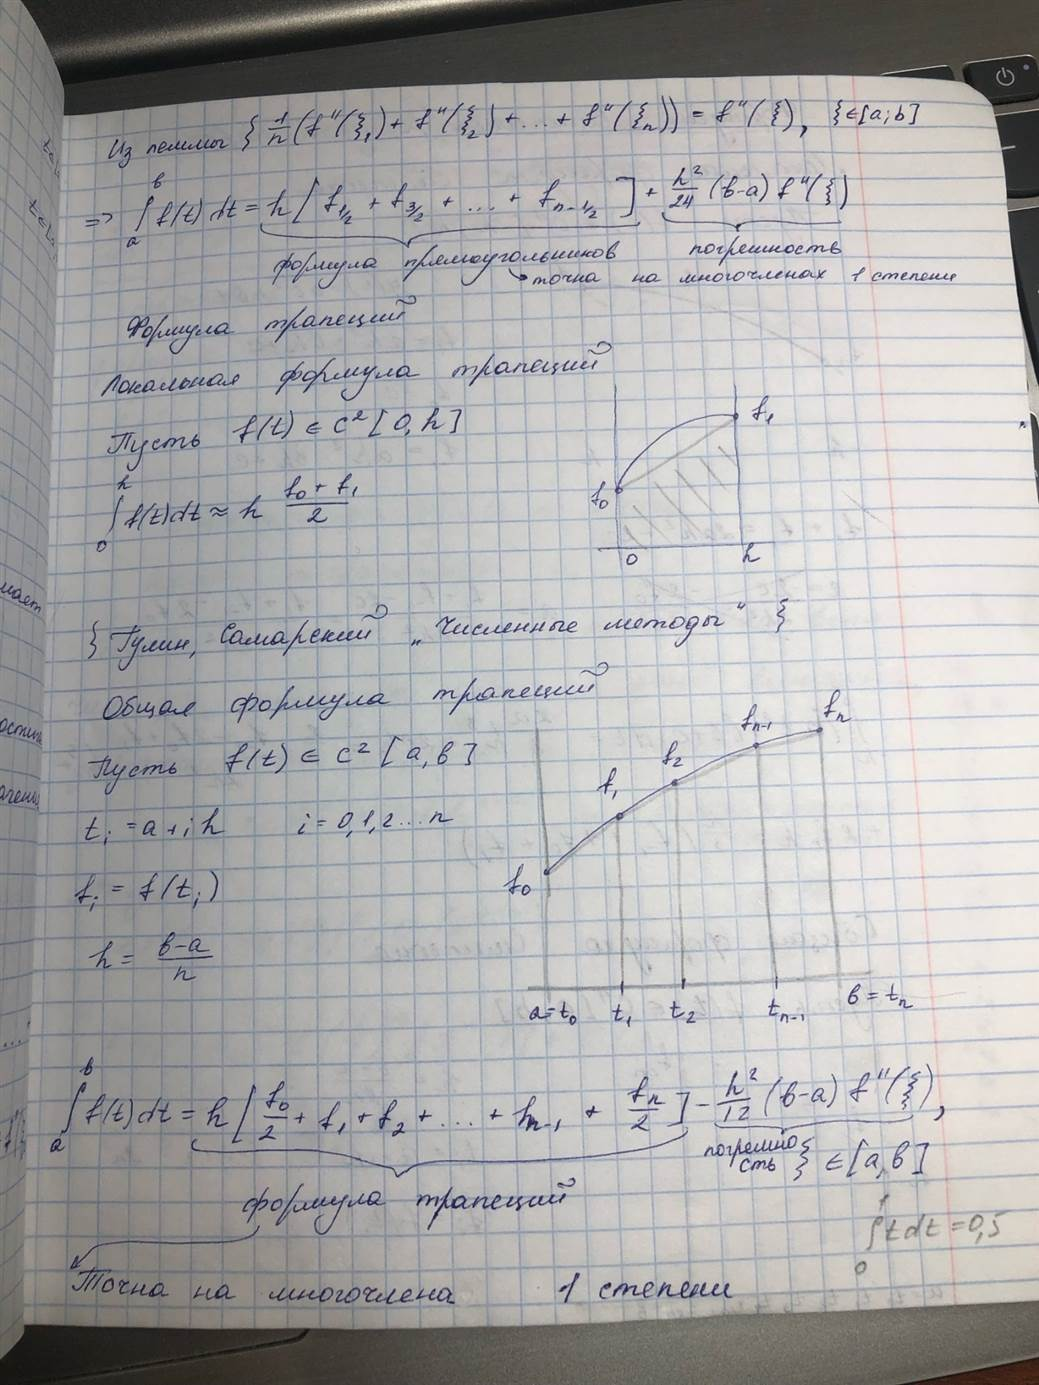 Из леммы { 1/n (f''(ξ₁) + f''(ξ₂) + ... + f''(ξₙ)) = f''(ξ), ξ∈[a;b]
=> ∫ₐᵇ f(t) dt = h [ f₁/₂ + f₃/₂ + ... + fₙ₋₁/₂ ] + h²/24 (b-a) f''(ξ)
формула прямоугольников погрешность
точна на многочленах 1 степени
Формула трапеций
Локальная формула трапеций
Пусть f(t) ∈ C² [0,h]
∫₀ʰ f(t)dt ≈ h (f₀ + f₁)/2
f₁
f₀
0 h
{ Гулин, Самарский „Численные методы" }
Общая формула трапеций
Пусть f(t) ∈ C² [a,b]
tᵢ = a + i h i = 0,1,2...n
fᵢ = f(tᵢ)
h = (b-a)/n
f₀ f₁ f₂ fₙ₋₁ fₙ
a=t₀ t₁ t₂ tₙ₋₁ b=tₙ
∫ₐᵇ f(t) dt = h [ f₀/2 + f₁ + f₂ + ... + fₙ₋₁ + fₙ/2 ] - h²/12 (b-a) f''(ξ),
погрешно
сть ξ ∈ [a,b]
формула трапеций
∫₀¹ t dt = 0,5
Точна на многочлена 1 степени